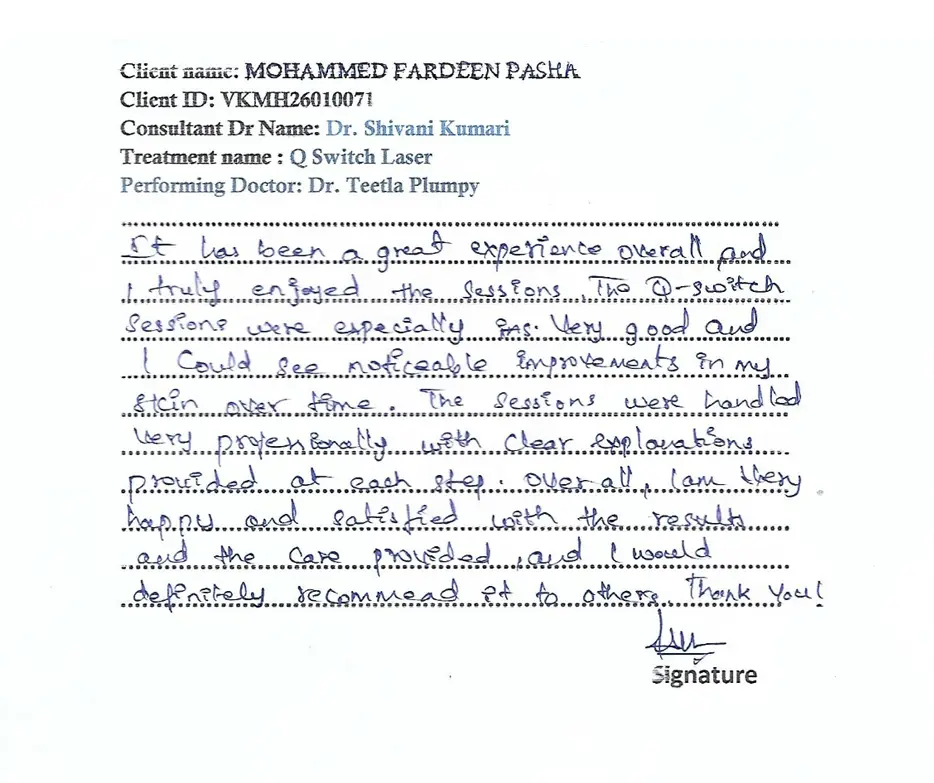 Client name: MOHAMMED FARDEEN PASHA
Client ID: VKMH26010071
Consultant Dr Name: Dr. Shivani Kumari
Treatment name : Q Switch Laser
Performing Doctor: Dr. Teetla Plumpy
It has been a great experience overall and
I truly enjoyed the sessions. The Q-switch
sessions were especially Very good and
I Could see noticeable improvements in my
skin over time. The sessions were handled
Very professionally with clear explanations
provided at each step. Overall, I am Very
happy and satisfied with the results
and the care provided, and I would
definitely recommend it to others. Thank You!
Signature